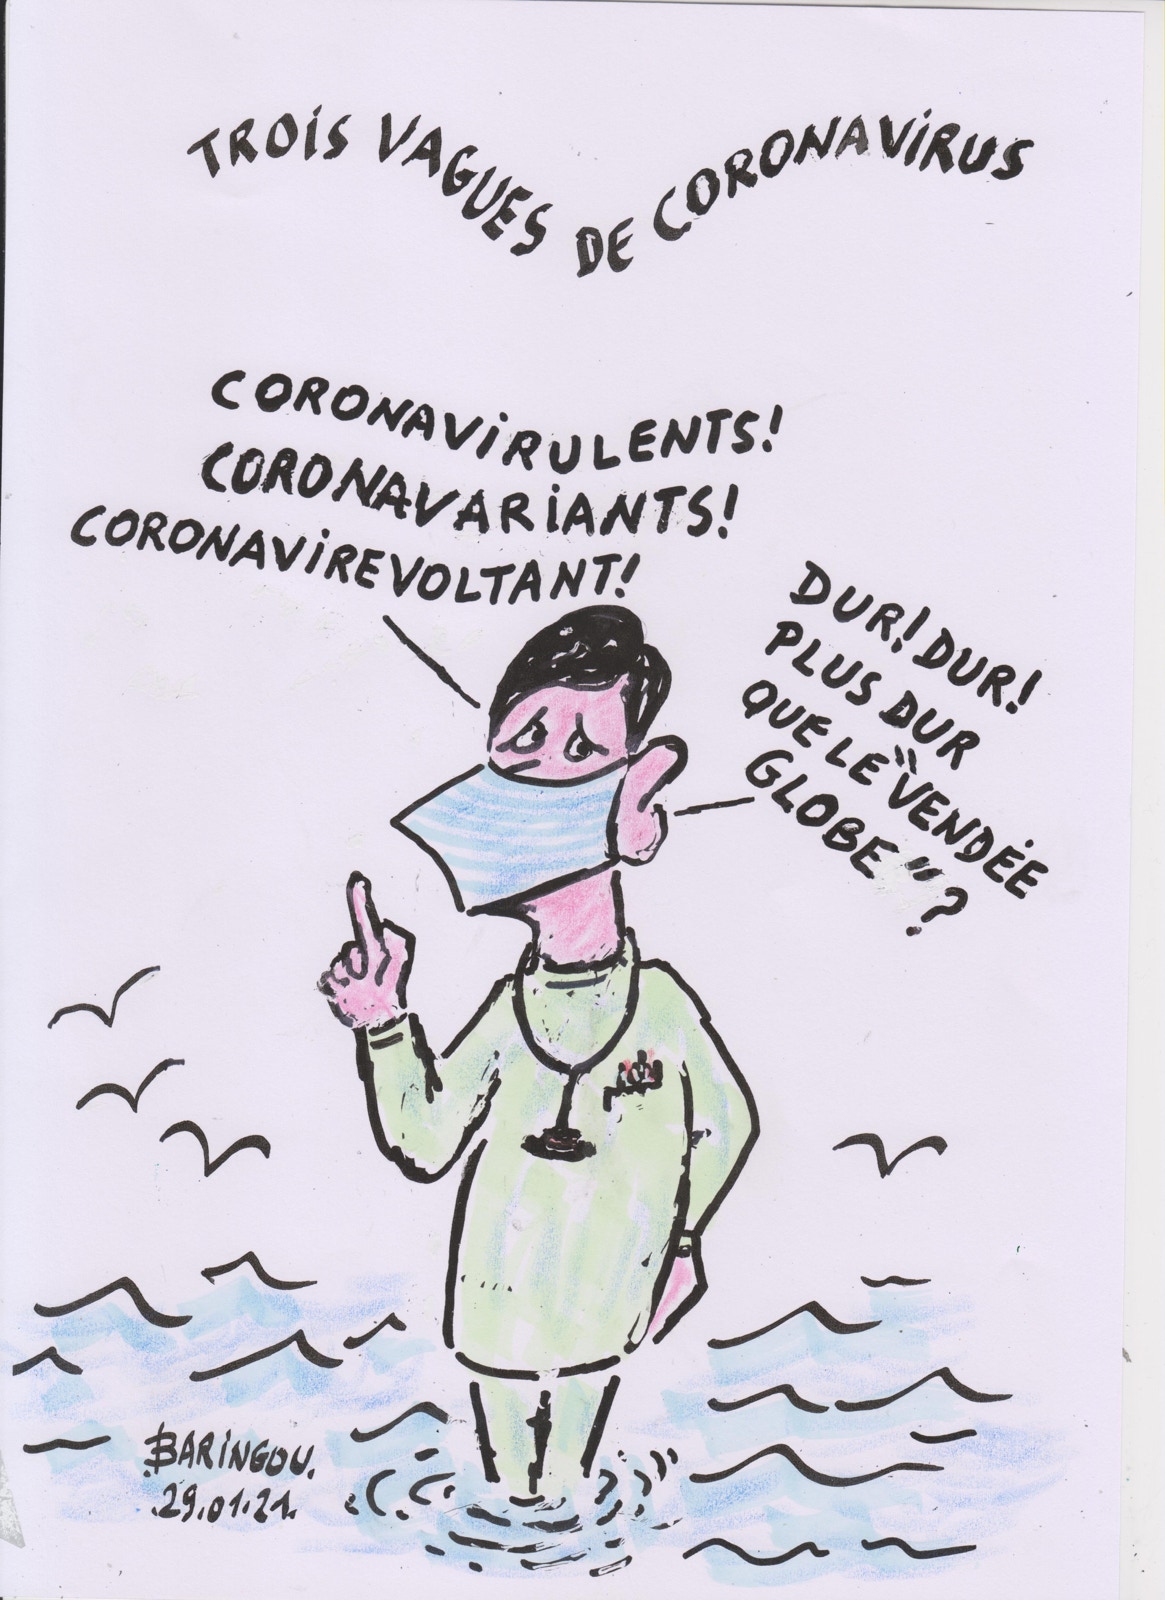 TROIS VAGUES DE CORONAVIRUS
CORONAVIRULENTS!
CORONAVARIANTS!
CORONAVIREVOLTANT!
DUR! DUR!
PLUS DUR
QUE LE "VENDÉE
GLOBE"?
BARINGOU.
.29.01.21.